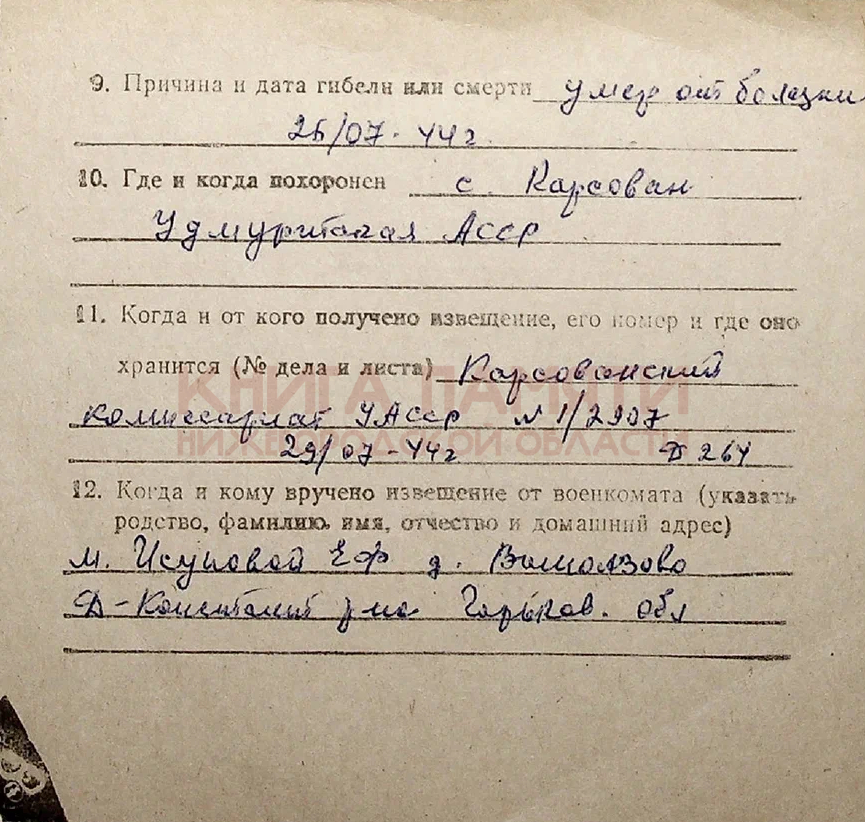 9. Причина и дата гибели или смерти умер от болезни
26/07-44г
10. Где и когда похоронен с. Карсован
Удмуртская АССР
11. Когда и от кого получено извещение, его номер и где оно
хранится (№ дела и листа) Карсованский
КНИГА ПАМЯТИ
комиссариат УАССР N 1/2907
НИЖЕГОРОДСКОЙ ОБЛАСТИ
29/07-44г Д 264
12. Когда и кому вручено извещение от военкомата (указать
родство, фамилию, имя, отчество и домашний адрес)
м. Исуповой ЕФ д.
Д-Констант р-на Горьков. обл